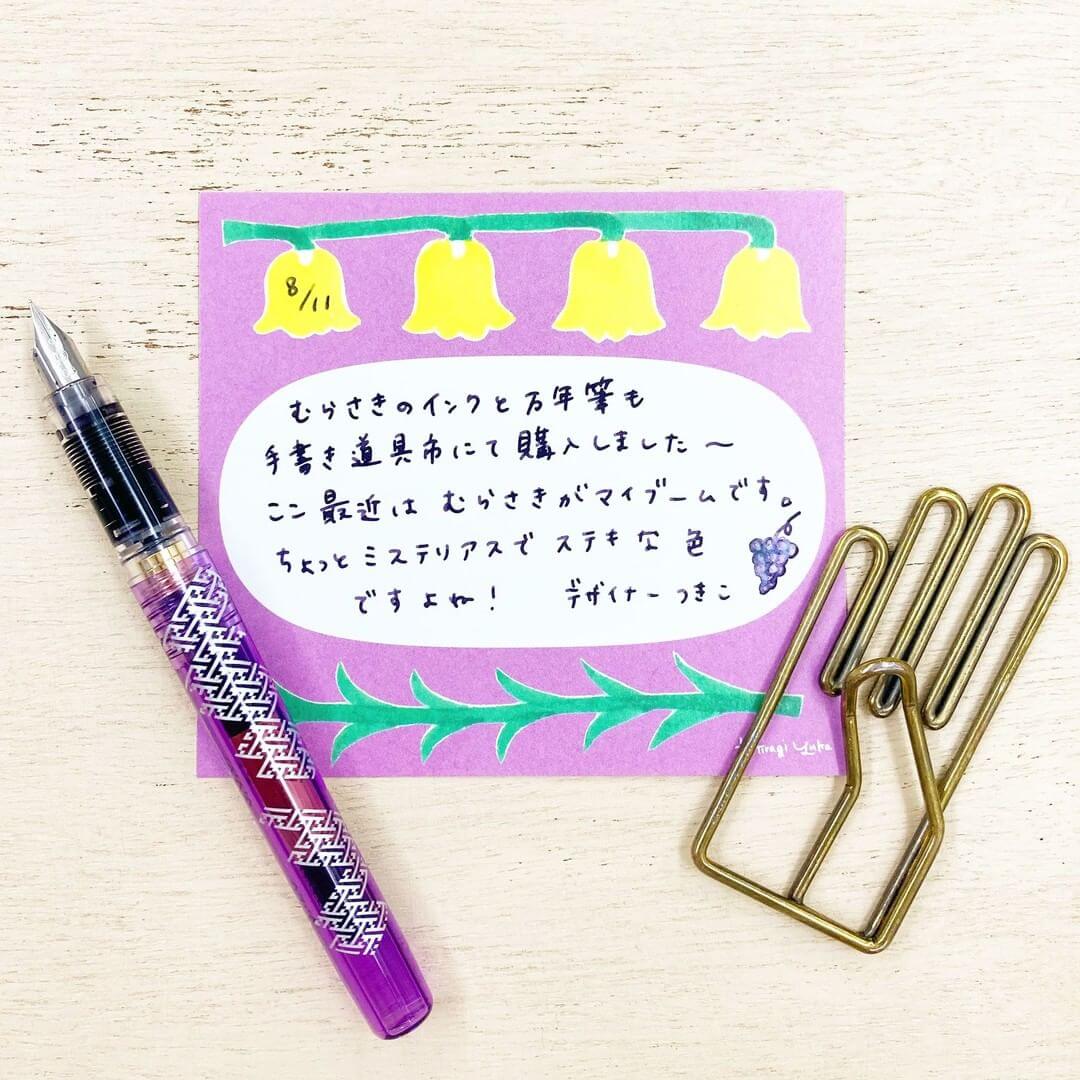 8/11
むらさきのインクと万年筆も
手書き道具市にて購入しました〜
ここ最近は むらさきがマイブームです。
ちょっとミステリアスで ステキな色
ですよね! デザイナーつきこ
Yuka